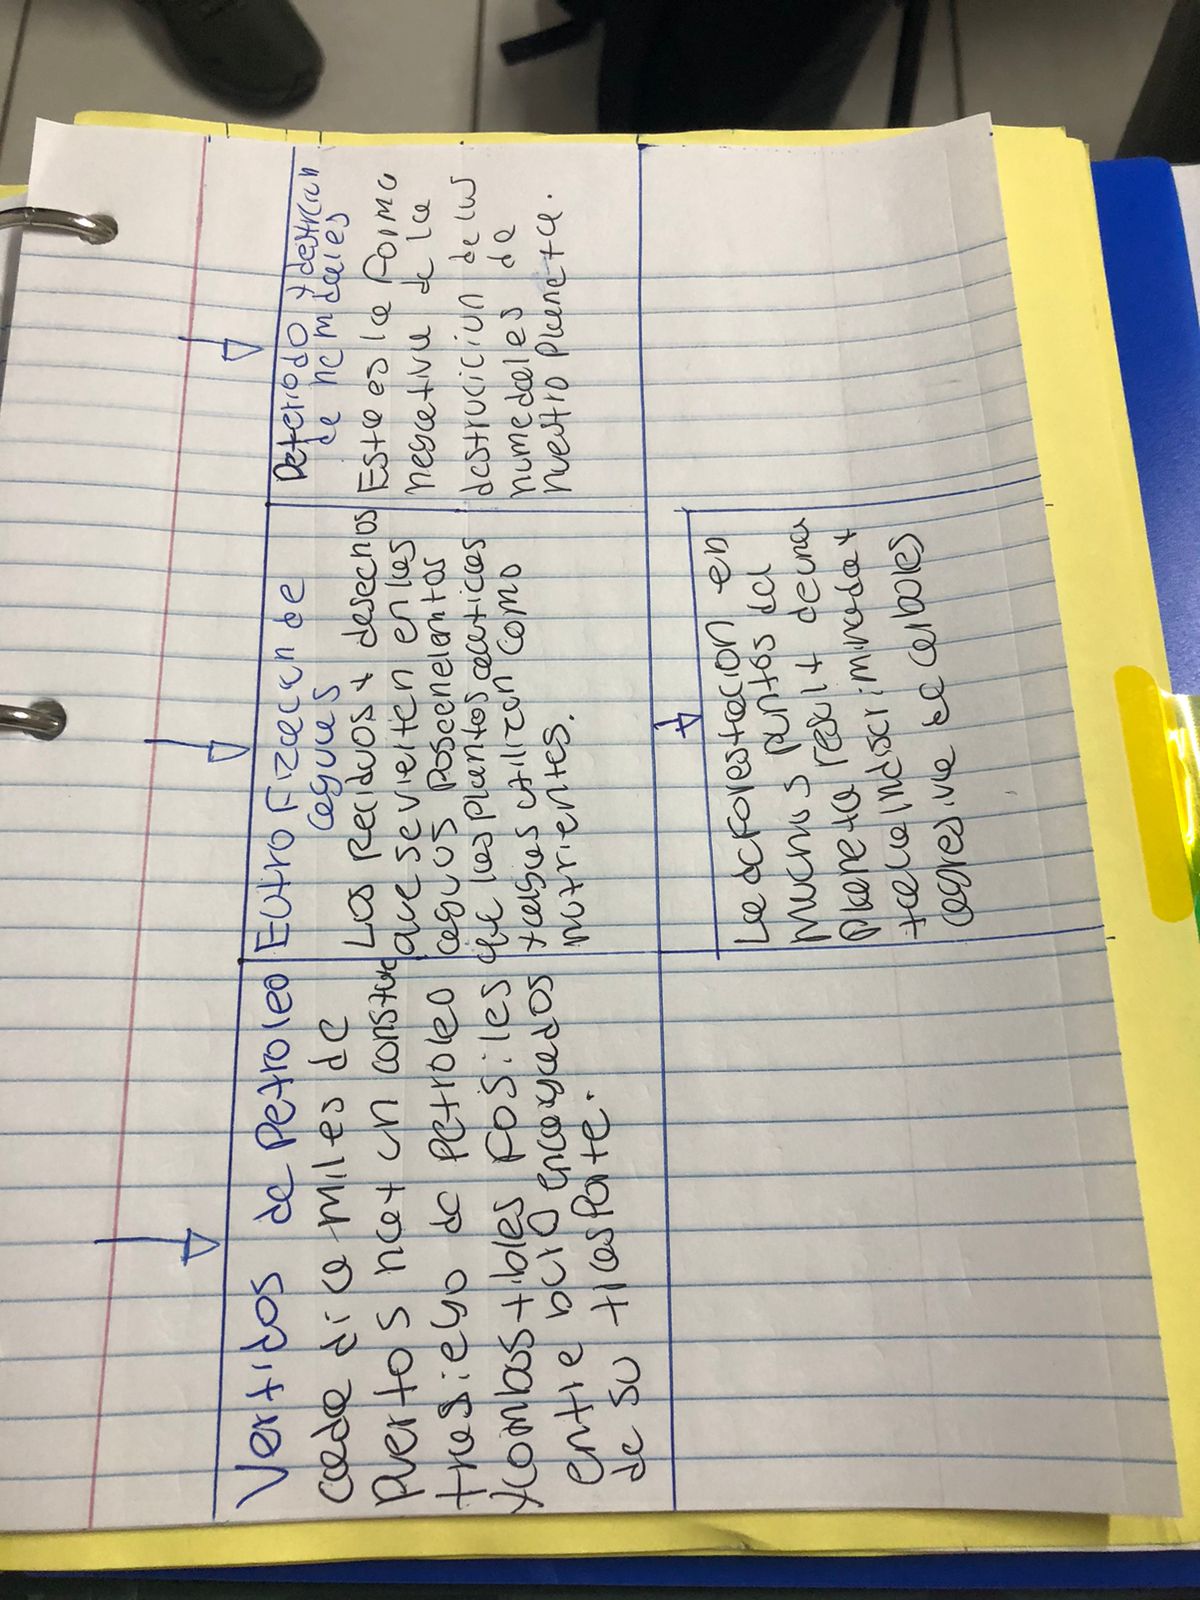 Vertidos de Petroleo
cada dia miles de
puertos hay un constante
trasiego de Petroleo
y combustibles Fosiles
entre encargados
de su trasporte.
Eutrofizacion de
aguas
Los Reciduos y desechos
que se vierten en las
aguas Poseen elemtos
que las plantas acuticas
y algas utilizan como
nutrientes.
Deteriodo y destrcion
de hemdales
Esta es la Forma
negativa de la
destrucicion de los
humedales de
nuestro planeta.
La deforestacion en
muchos puntos del
planeta result de una
tala indiscriminada y
agresiva de arboles